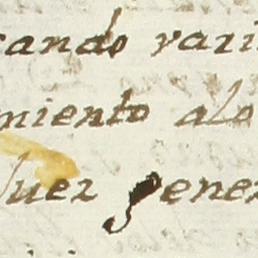 cando vari
miento alo
Juez gene